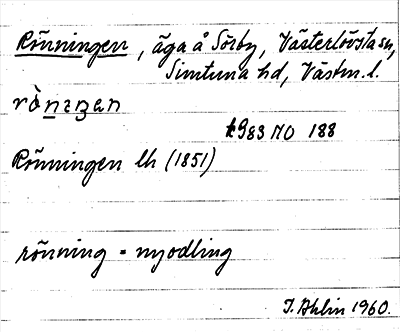 Rönningen, äga å Sörby, Västerlövsta sn,
Simtuna hd, Västm. l.
rò̀nıŋan
k983 NO 188
Rönningen lh (1851)
rönning = nyodling
I. Ahlin 1960.